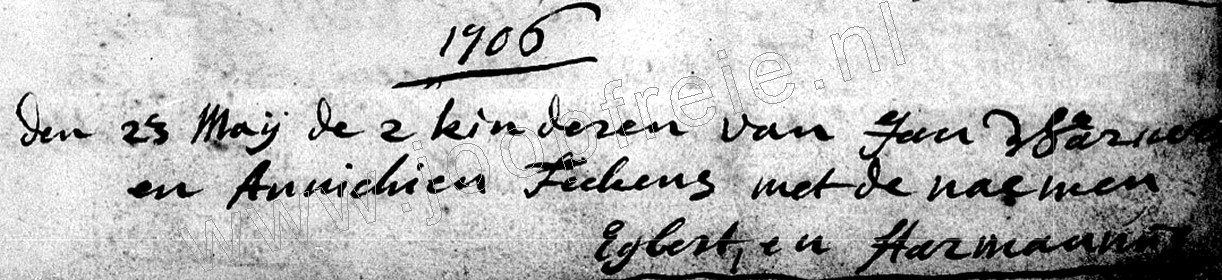 1906
den 25 Maij de 2 kinderen van Jan
en Annichien Feckens met de naemen
Egbert, en Harmannus
www.jhoopfreie.nl